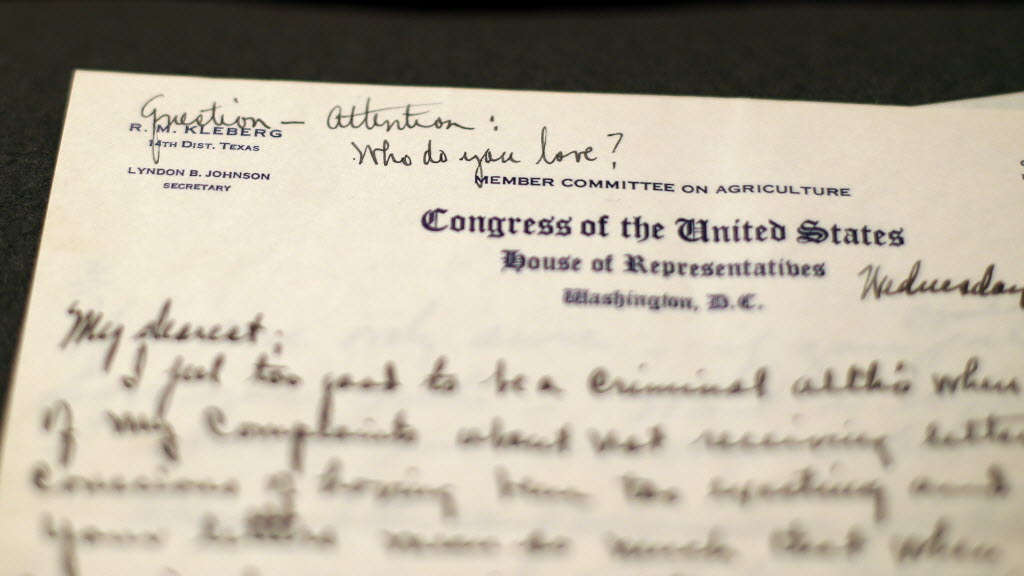 Question - Attention:
R. M. KLEBERG
14TH DIST. TEXAS
Who do you love?
LYNDON B. JOHNSON
SECRETARY
MEMBER COMMITTEE ON AGRICULTURE
Congress of the United States
House of Representatives
Washington, D.C.
Wednesday
My dearest:
I feel too good to be a criminal altho when
of my complaints about not receiving
conscious of having been too exacting and
your letters mean so much that when